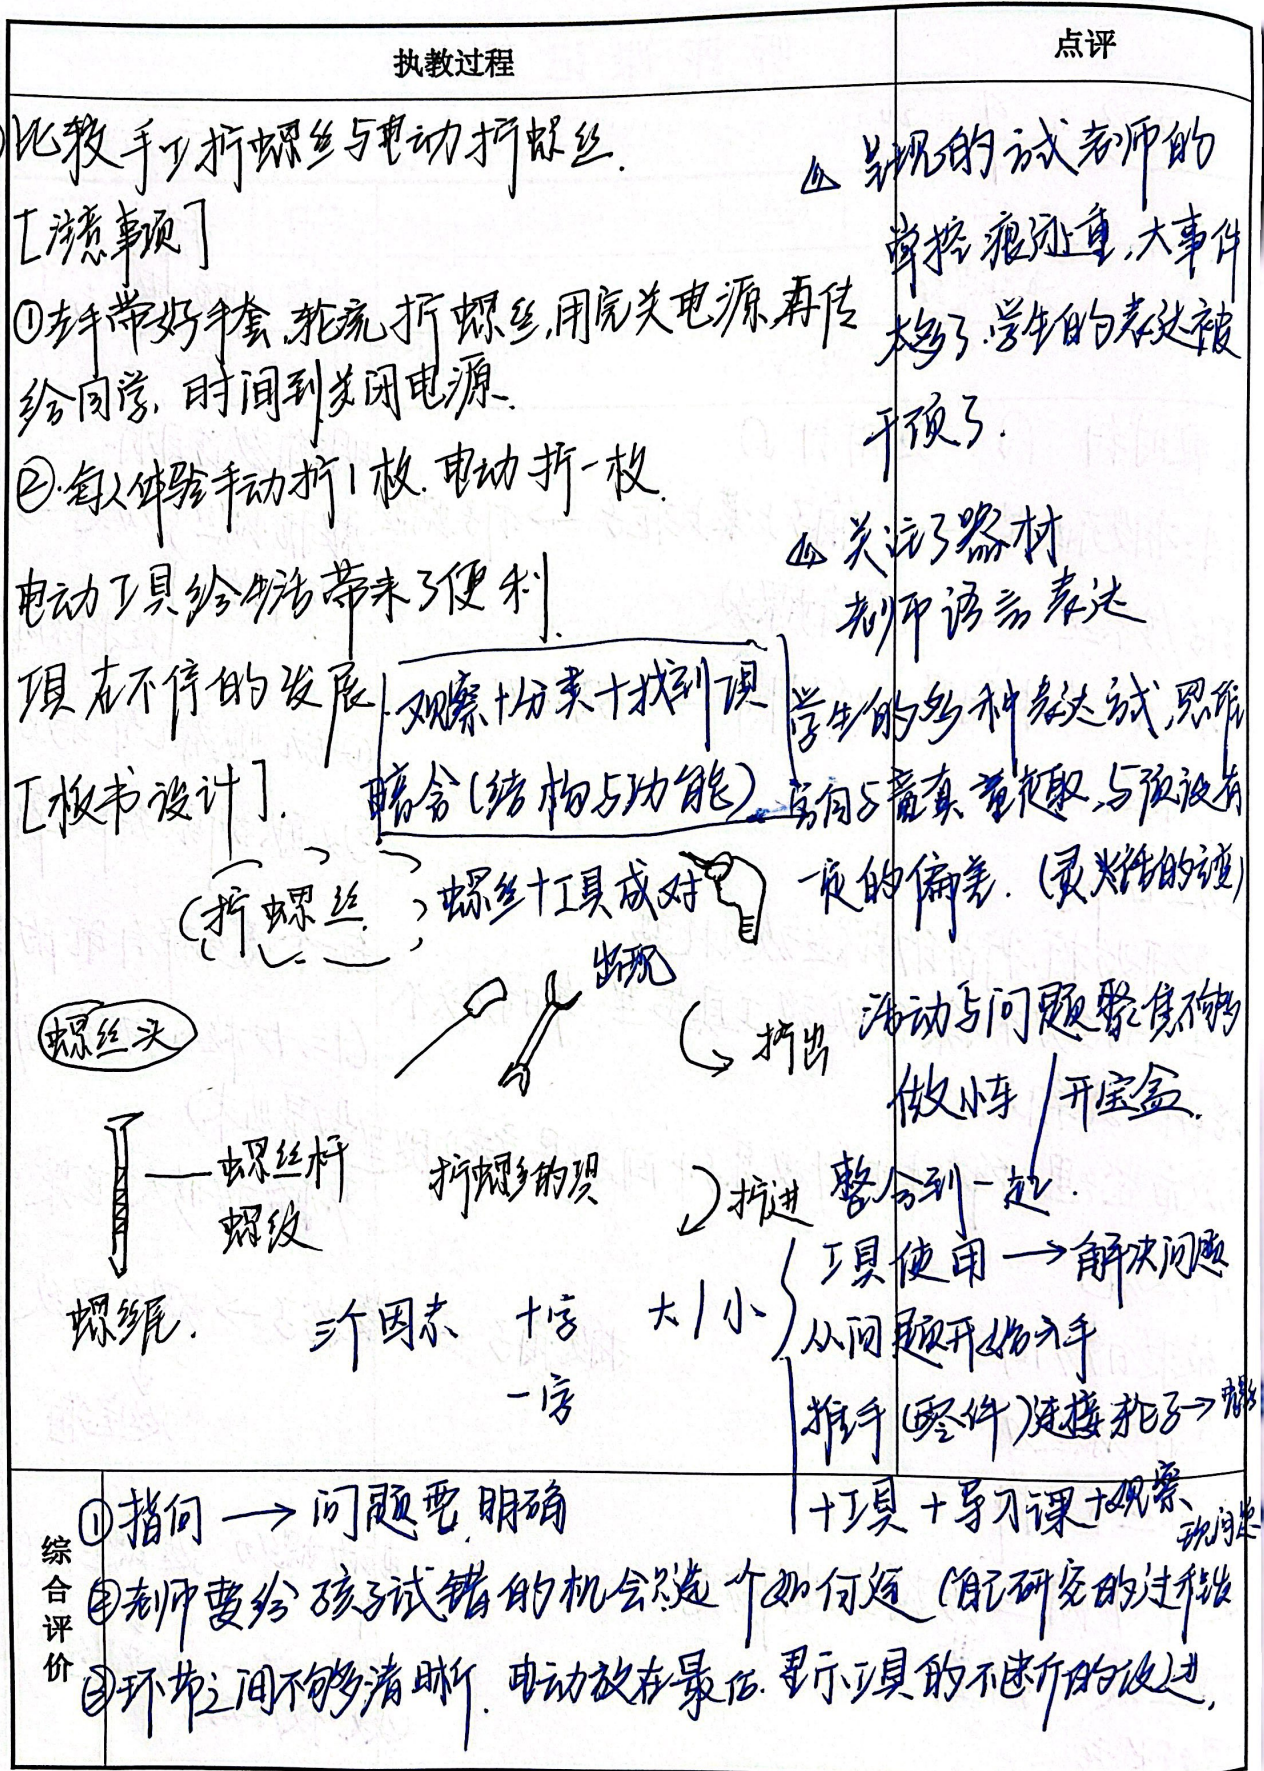 执教过程
点评
比较手工拧螺丝与电动拧螺丝.
[注意事项]
①左手带好手套,轮流拧螺丝,用完关电源,再传
给同学,时间到关闭电源.
②.每人体验手动拧1枚.电动拧一枚.
电动工具给生活带来了便利.
工具在不停的发展
[板书设计].
观察+分类+找到工具
吻合(结构与功能)
(拧螺丝)
螺丝+工具成对
出现
螺丝头
拧出
螺丝杆
螺纹
拧螺丝的工具
拧进
螺丝尾.
三个因素 十字 大/小
一字
呈现的方式老师的
掌控痕迹重,大事件
太多了.学生的表达被
干预了.
关注了器材
老师语言表达
学生的多种表达方式,思维
方向与童真童趣,与预设有
一定的偏差.
活动与问题聚焦不够
做小车/开宝盒.
整合到一起.
工具使用→解决问题
从问题开始入手
推手(零件)连接轮子→螺丝
+工具+导习课+观察
综合评价
①指向→问题要明确
②老师要给孩子试错的机会,选一个如何选(自己研究的过程
③环节之间不够清晰.电动放在最后.显示工具的不断的改进,